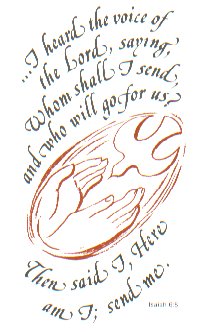 ...I heard the voice of
the Lord, saying,
Whom shall I send,
and who will go for us?
Then said I, Here
am I; send me.
Isaiah 6:8